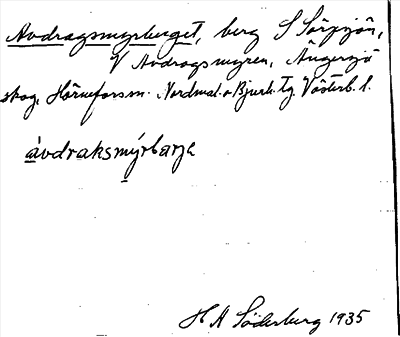 Avdragsmyrberget, berg S Sörsjön,
V Avdragsmyren, Ångersjö
skog, Hörnefors sn. Nordmal. o Bjurh. tg. Västerb. l.
ávdraksmýrbærje
H A Söderberg 1935